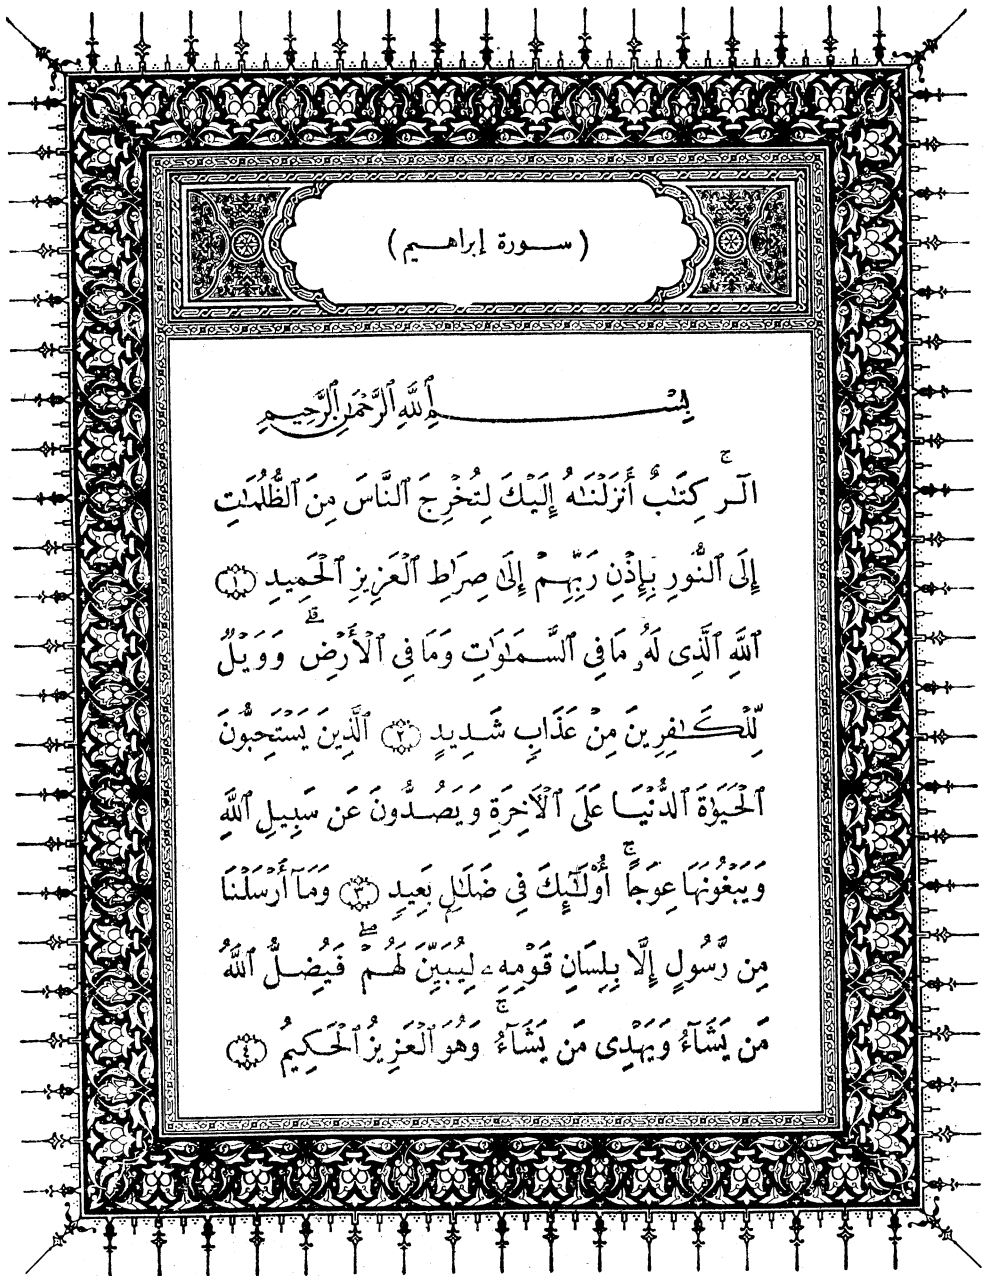 ( سورة إبراهيم )
بِسْمِ ٱللَّهِ ٱلرَّحْمَٰنِ ٱلرَّحِيمِ
الٓر ۚ كِتَٰبٌ أَنزَلْنَٰهُ إِلَيْكَ لِتُخْرِجَ ٱلنَّاسَ مِنَ ٱلظُّلُمَٰتِ
إِلَى ٱلنُّورِ بِإِذْنِ رَبِّهِمْ إِلَىٰ صِرَٰطِ ٱلْعَزِيزِ ٱلْحَمِيدِ ﴿١﴾
ٱللَّهِ ٱلَّذِى لَهُۥ مَا فِى ٱلسَّمَٰوَٰتِ وَمَا فِى ٱلْأَرْضِ ۗ وَوَيْلٌ
لِّلْكَٰفِرِينَ مِنْ عَذَابٍ شَدِيدٍ ﴿٢﴾ ٱلَّذِينَ يَسْتَحِبُّونَ
ٱلْحَيَوٰةَ ٱلدُّنْيَا عَلَى ٱلْأٓخِرَةِ وَيَصُدُّونَ عَن سَبِيلِ ٱللَّهِ
وَيَبْغُونَهَا عِوَجًا ۚ أُو۟لَٰٓئِكَ فِى ضَلَٰلٍۭ بَعِيدٍ ﴿٣﴾ وَمَآ أَرْسَلْنَا
مِن رَّسُولٍ إِلَّا بِلِسَانِ قَوْمِهِۦ لِيُبَيِّنَ لَهُمْ ۖ فَيُضِلُّ ٱللَّهُ
مَن يَشَآءُ وَيَهْدِى مَن يَشَآءُ ۚ وَهُوَ ٱلْعَزِيزُ ٱلْحَكِيمُ ﴿٤﴾